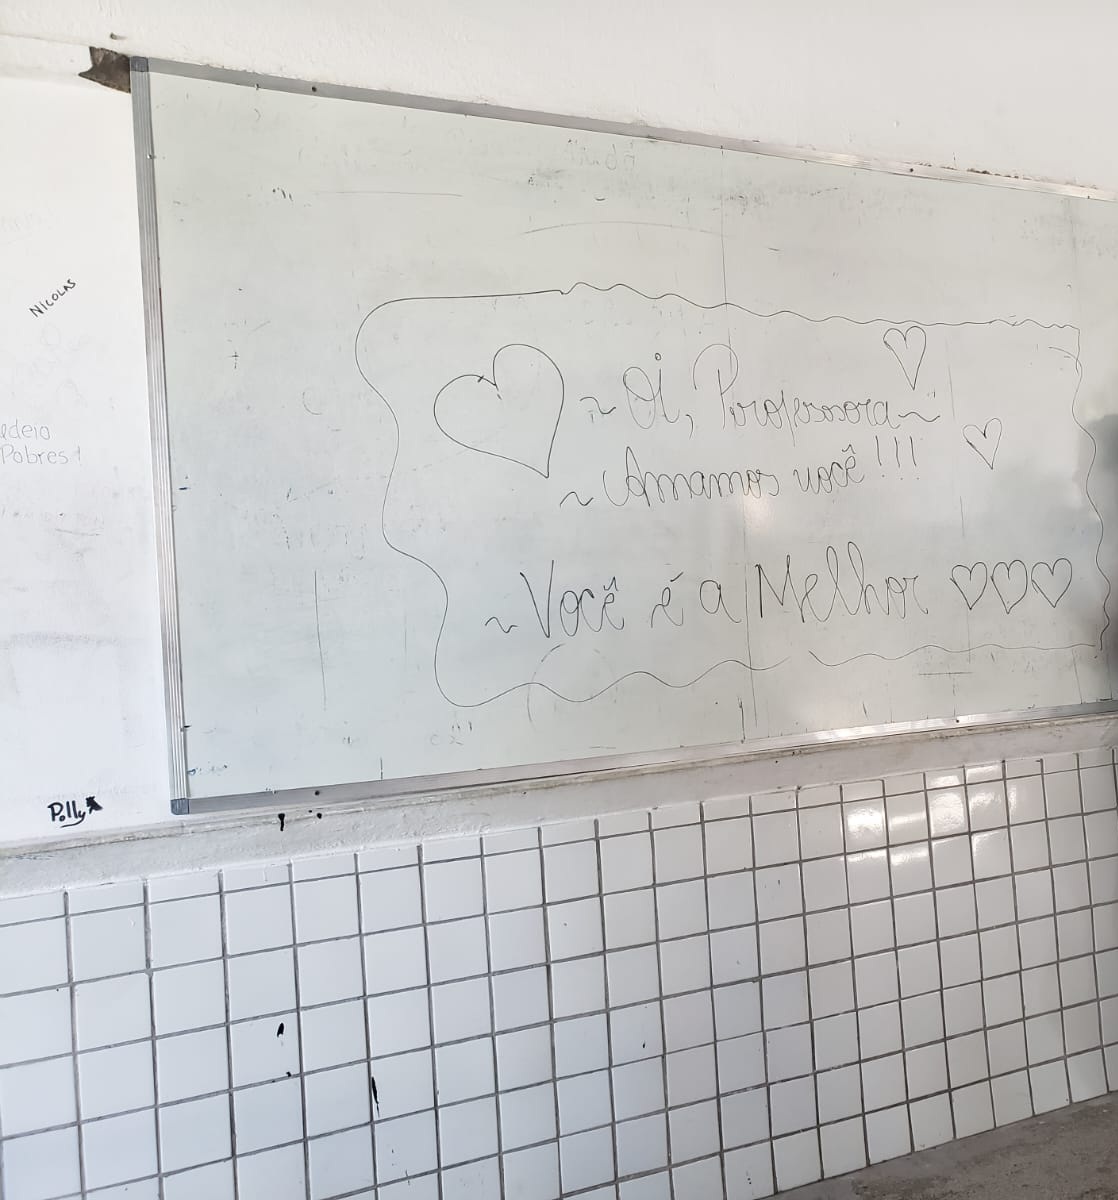 NICOLAS
odeio
Pobres!
Polly
~ Oi, Professora ~
~ Amamos você !!!
~ Você é a Melhor